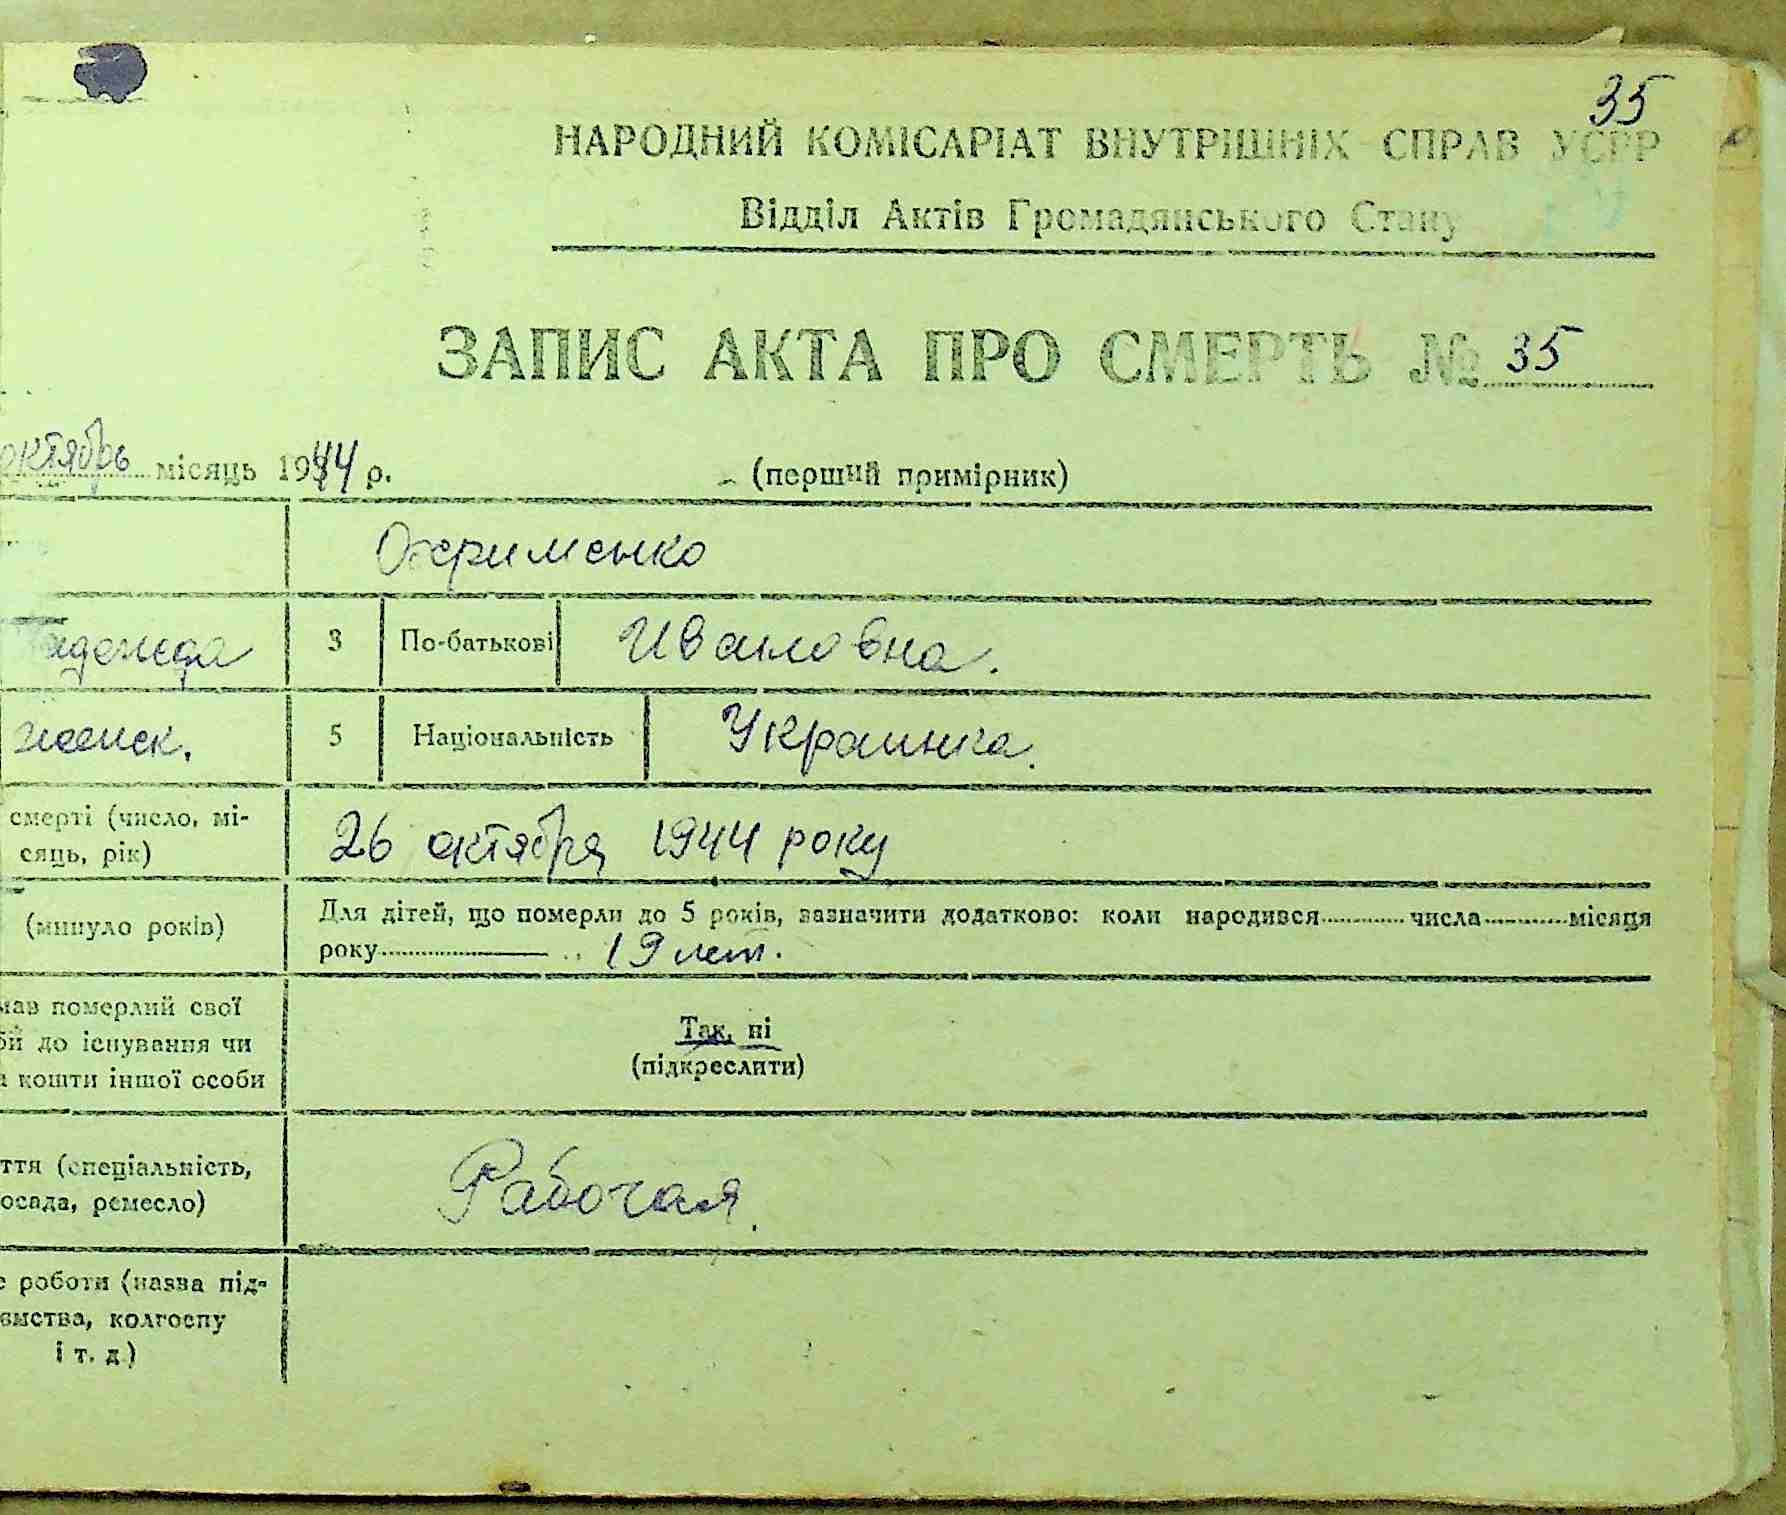 35
НАРОДНИЙ КОМІСАРІАТ ВНУТРІШНІХ СПРАВ УСРР
Відділ Актів Громадянського Стану
ЗАПИС АКТА ПРО СМЕРТЬ № 35
октябрь місяць 1944 р. (перший примірник)
Охрименко
надежда 3 По-батькові Ивановна.
женск. 5 Національність Украинка.
смерті (число, мі-
сяць, рік)
26 октября 1944 року
(минуло років)
Для дітей, що померли до 5 років, зазначити додатково: коли народився числа місяця
року 19 лет.
мав померлий свої
би до існування чи
а кошти іншої особи
Так, ні
(підкреслити)
ття (спеціальність,
осада, ремесло)
Рабочая.
е роботи (назва під-
ємства, колгоспу
і т. д.)